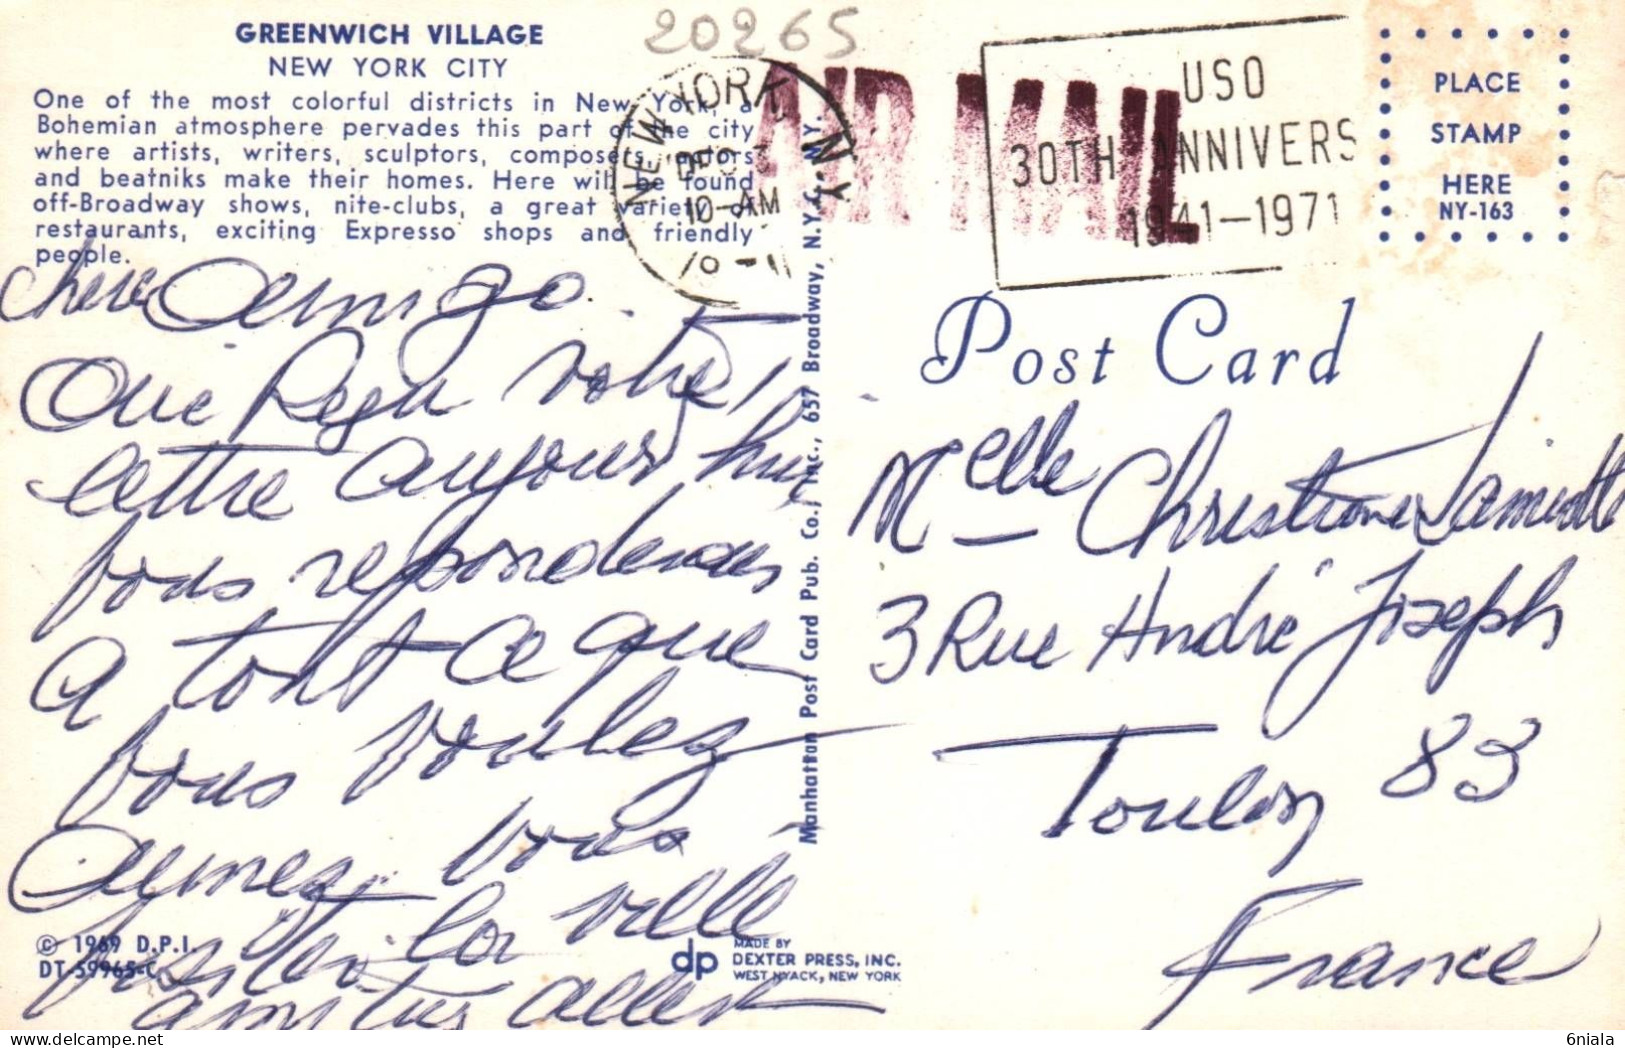 GREENWICH VILLAGE
NEW YORK CITY
One of the most colorful districts in New York, a
Bohemian atmosphere pervades this part of the city
where artists, writers, sculptors, composers, actors
and beatniks make their homes. Here will be found
off-Broadway shows, nite-clubs, a great variety of
restaurants, exciting Expresso shops and friendly
people.
20265
NEW YORK N.Y.
10-AM
AIR MAIL
USO
30TH ANNIVERS
1941-1971
PLACE
STAMP
HERE
NY-163
Post Card
chere Amigo
Oui Reçu votre
lettre aujourd hui
vous reponderais
a tout ce que
vous voulez
Aymez vous
visiter la ville
aller
Manhattan Post Card Pub. Co., Inc., 657 Broadway, N.Y., N.Y.
Melle Christiane
3 Rue André Joseph
Toulon 83
France
© 1969 D.P.I.
DT-59965-C
dp
MADE BY
DEXTER PRESS, INC.
WEST NYACK, NEW YORK
6niala